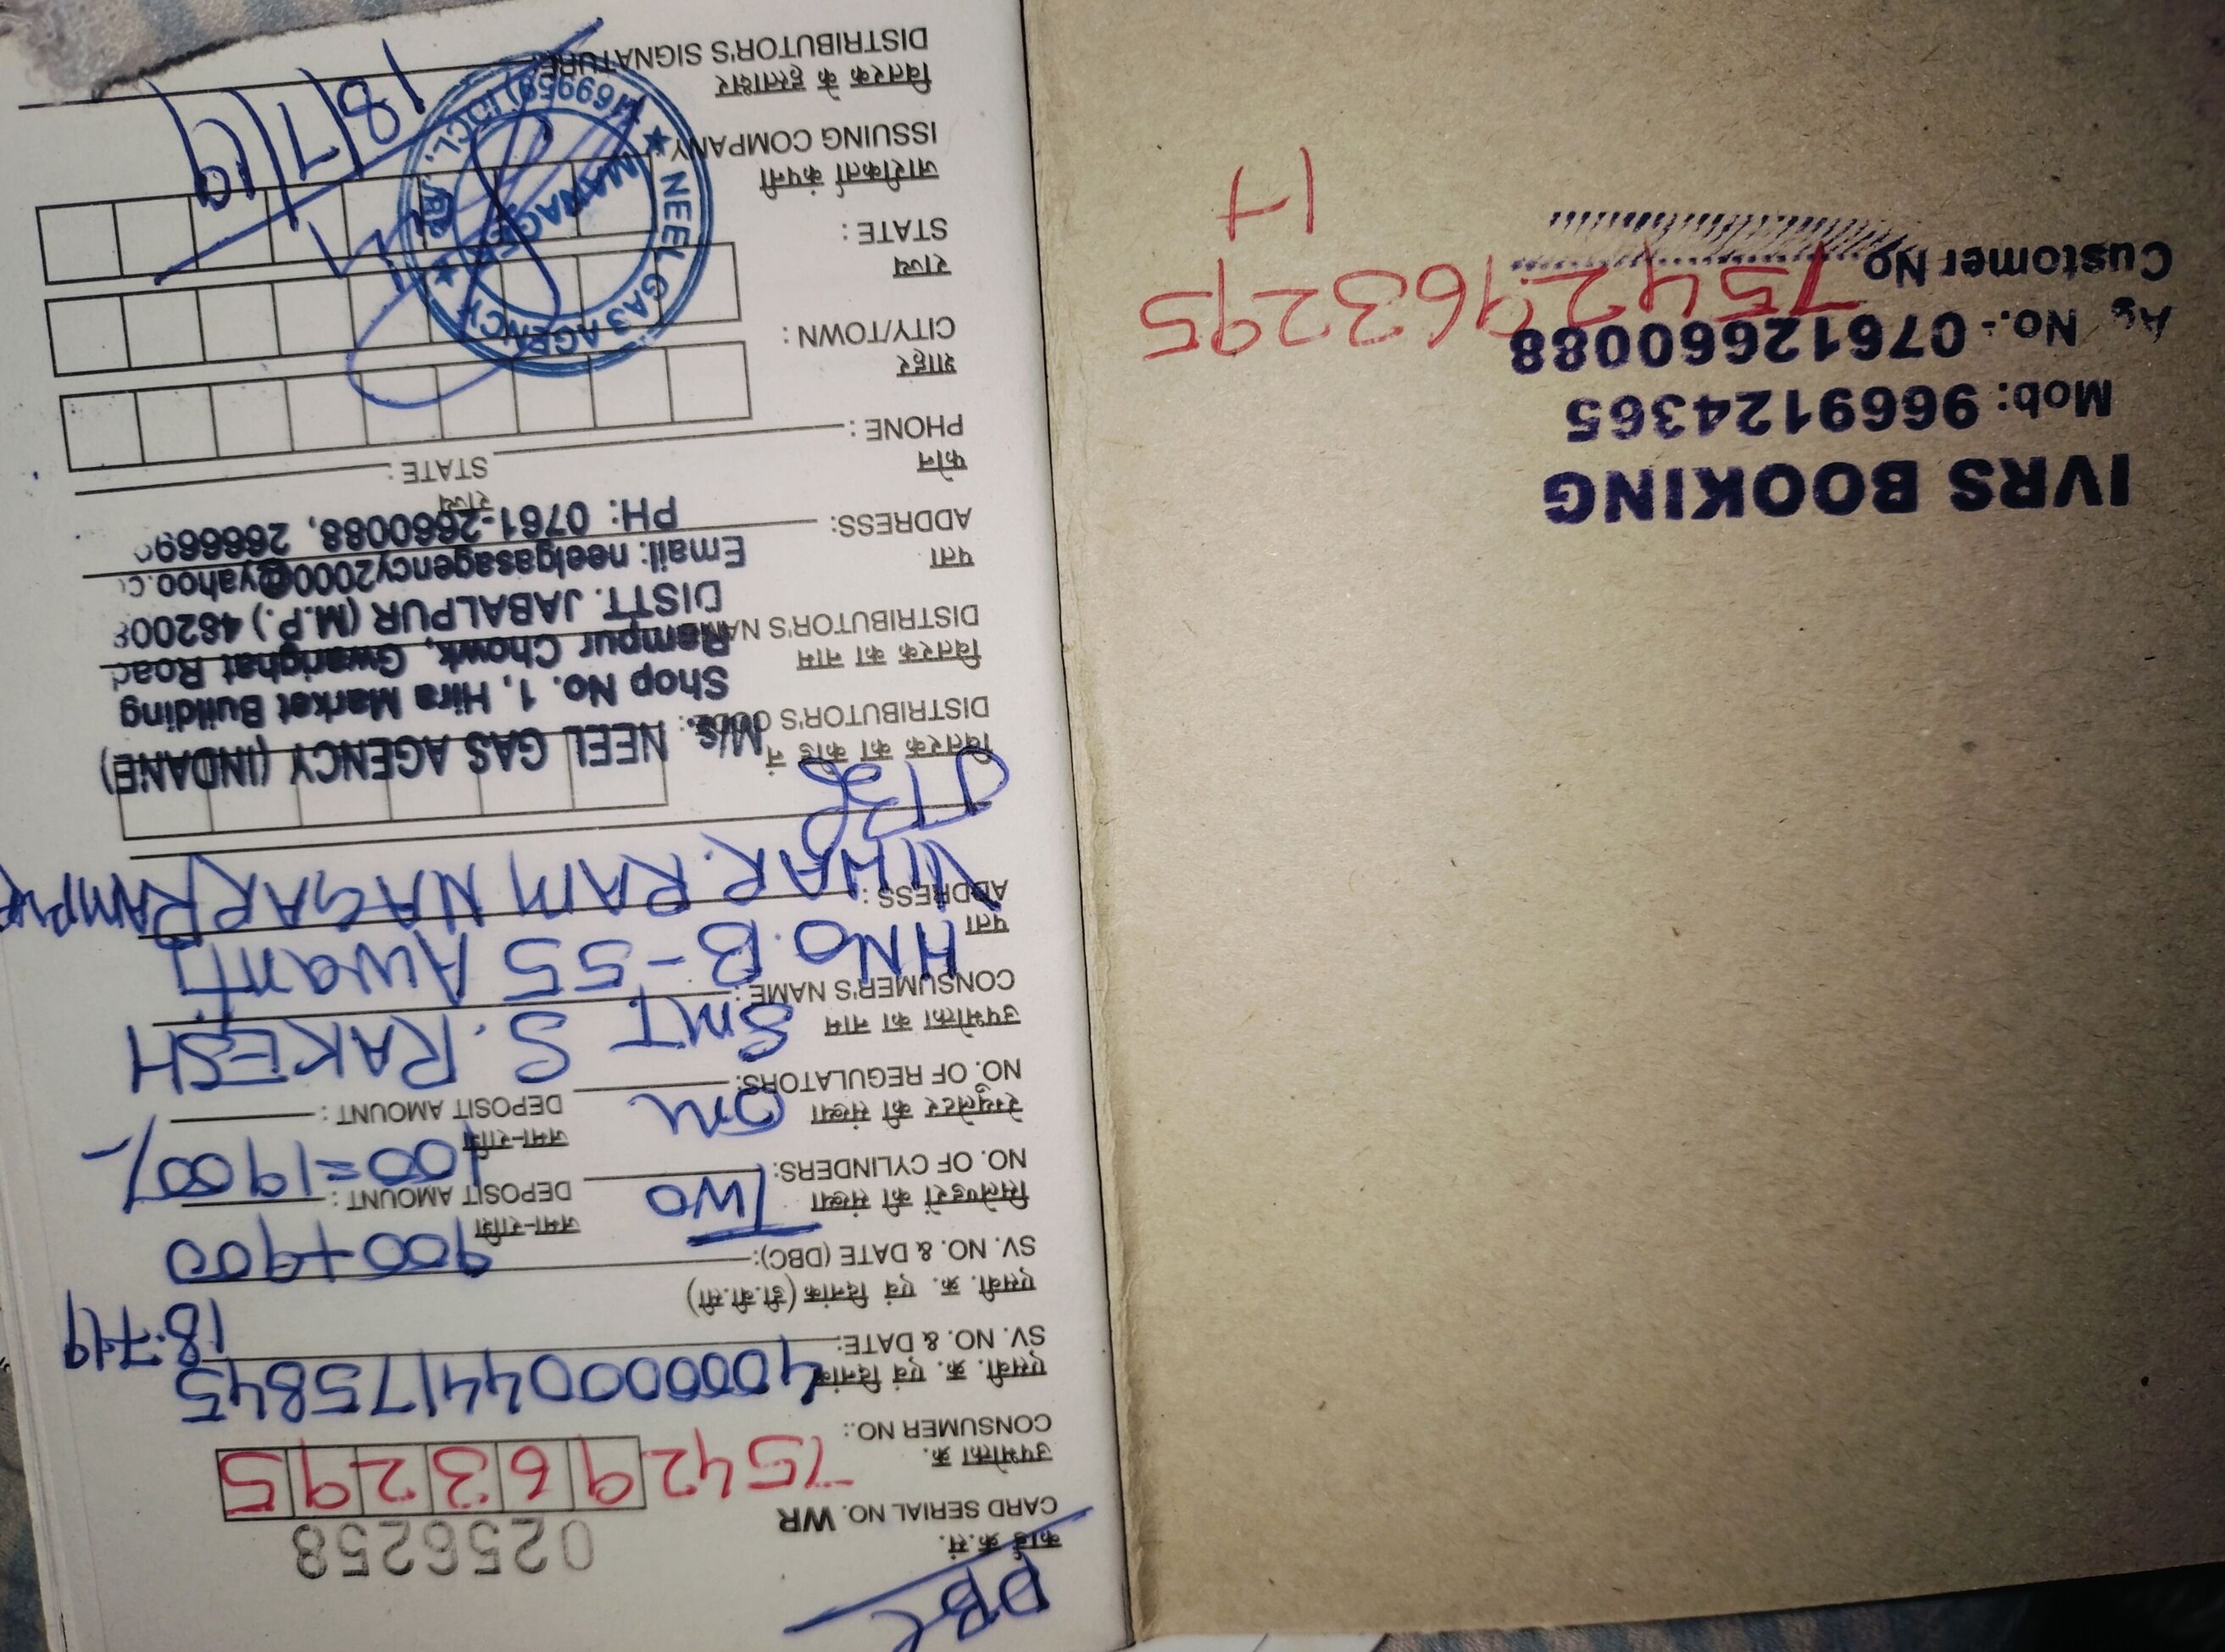 IVRS BOOKING
Mob: 9669124365
No.- 07612660088
Customer No
7542963295
17
DBC
कार्ड क्र.सं.
CARD SERIAL NO. WR 0256258
उपभोक्ता क्र.
CONSUMER NO.: 7542963295
एसवी. क्र. एवं दिनांक
SV. NO. & DATE: 4000000044175845 18.7.19
एसवी. क्र. एवं दिनांक (डी.बी.सी)
SV. NO. & DATE (DBC):
सिलेण्डरों की संख्या Two जमा-राशि 900+900
NO. OF CYLINDERS: DEPOSIT AMOUNT :
रेग्युलेटर की संख्या One जमा-राशि 100=1900/-
NO. OF REGULATORS: DEPOSIT AMOUNT :
उपभोक्ता का नाम SMT S. RAKESH
CONSUMER'S NAME :
पता HNO. B-55 Awanti
ADDRESS : VIHAR. RAM NAGAR RAMPUR
वितरक का कोड नं
DISTRIBUTOR'S CODE :
M/s. NEEL GAS AGENCY (INDANE)
Shop No. 1, Hira Market Building
वितरक का नाम
DISTRIBUTOR'S NAME
Rampur Chowk, Gwarighat Road
DISTT. JABALPUR (M.P.) 482008
पता
ADDRESS:
Email: neelgasagency2000@yahoo.c
PH: 0761-2660088, 266669
राज्य
STATE :
फोन
PHONE :
शहर
CITY/TOWN :
राज्य
STATE :
जारीकर्ता कंपनी
ISSUING COMPANY
वितरक के हस्ताक्षर
DISTRIBUTOR'S SIGNATURE
NEEL GAS AGENCY
MANAGER
18/7/19